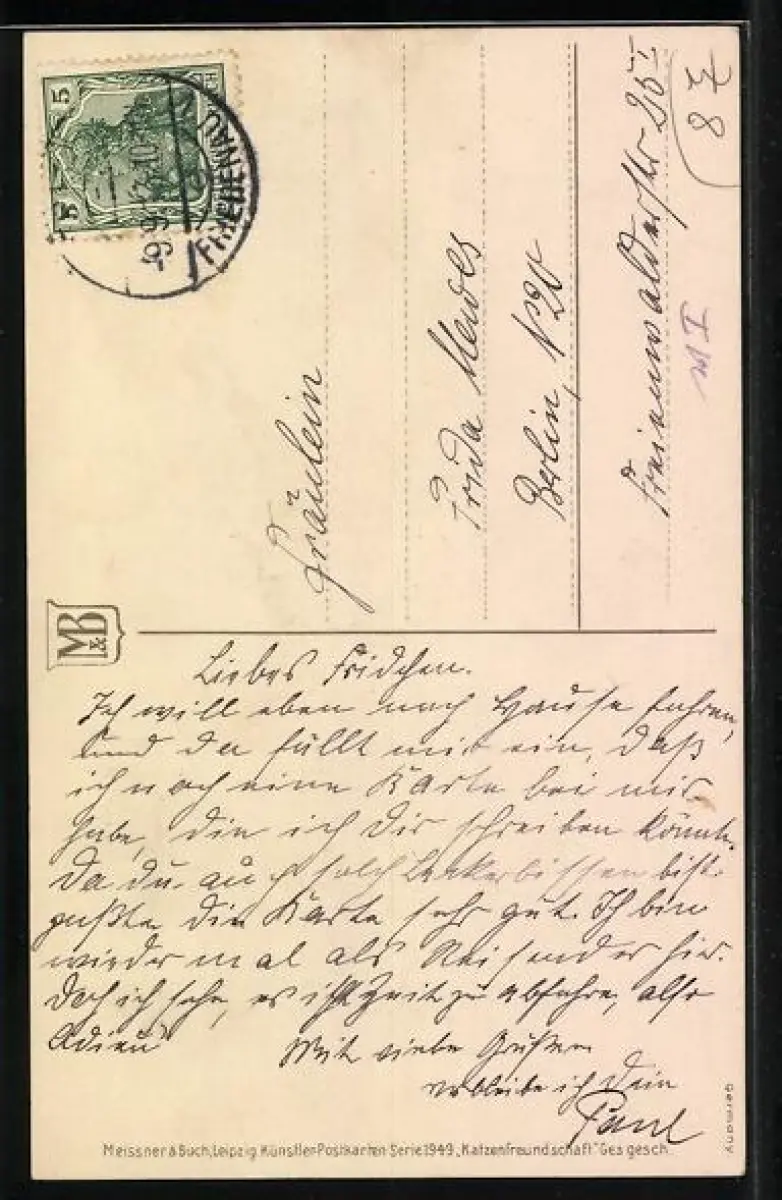 5 5
FRIEDENAU
Fräulein
Frida Mewes
Berlin, N 20
Freienwalderstr 25 I
87
M&B
Liebes Fridchen.
Ich will eben nach Hause fahren,
und da fällt mir ein, daß
ich noch eine Karte bei mir
habe, die ich Dir schreiben könnte.
Da du auch solch Leckerbissen bist
paßte die Karte sehr gut. Ich bin
wieder mal als Reisender hier.
Doch ich sehe, es ist Zeit zu abfahren, also
Adieu
Mit Grüßen
verbleibe ich Dein
Paul
Germany
Meissner & Buch, Leipzig Künstler-Postkarten Serie 1949, „Katzenfreundschaft" Ges. gesch.